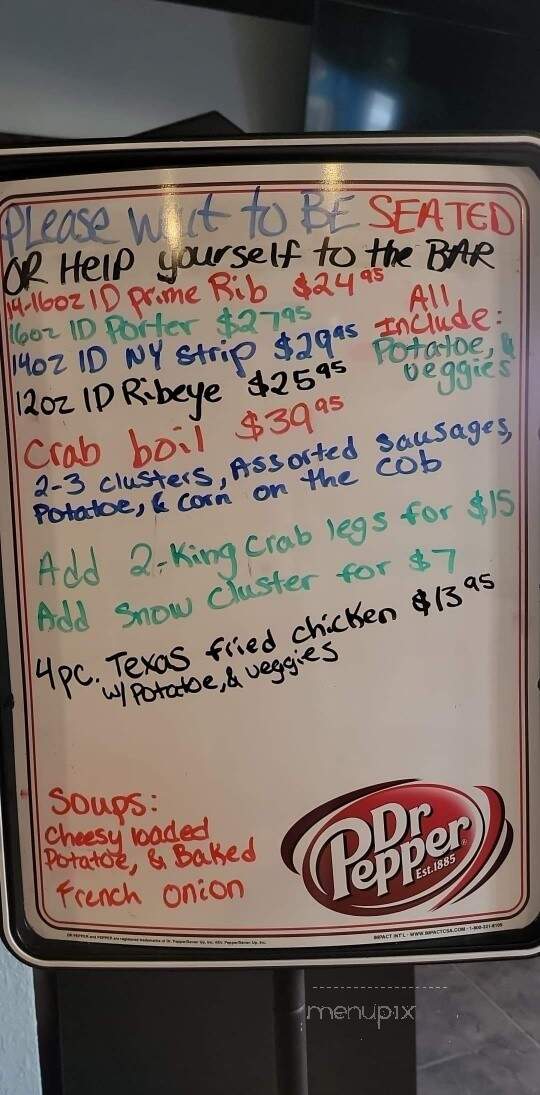 PLease wait to BE SEATED
OR HelP yourself to the BAR
14-16oz ID prime Rib $24 95
16oz ID Porter $27 95
14oz ID NY Strip $29 95
12oz ID Ribeye $25 95
All
Include:
Potatoe, &
veggies
Crab boil $39 95
2-3 clusters, Assorted sausages,
Potatoe, & corn on the cob
Add 2-King crab legs for $15
Add Snow cluster for $7
4pc. Texas fried chicken $13 95
w/ Potatoe, & veggies
Soups:
Cheesy loaded
Potatoe, & Baked
French onion
Dr
Pepper
Est.1885
IMPACT INT'L - WWW.IMPACTCSA.COM - 1-800-321-8105
menupix